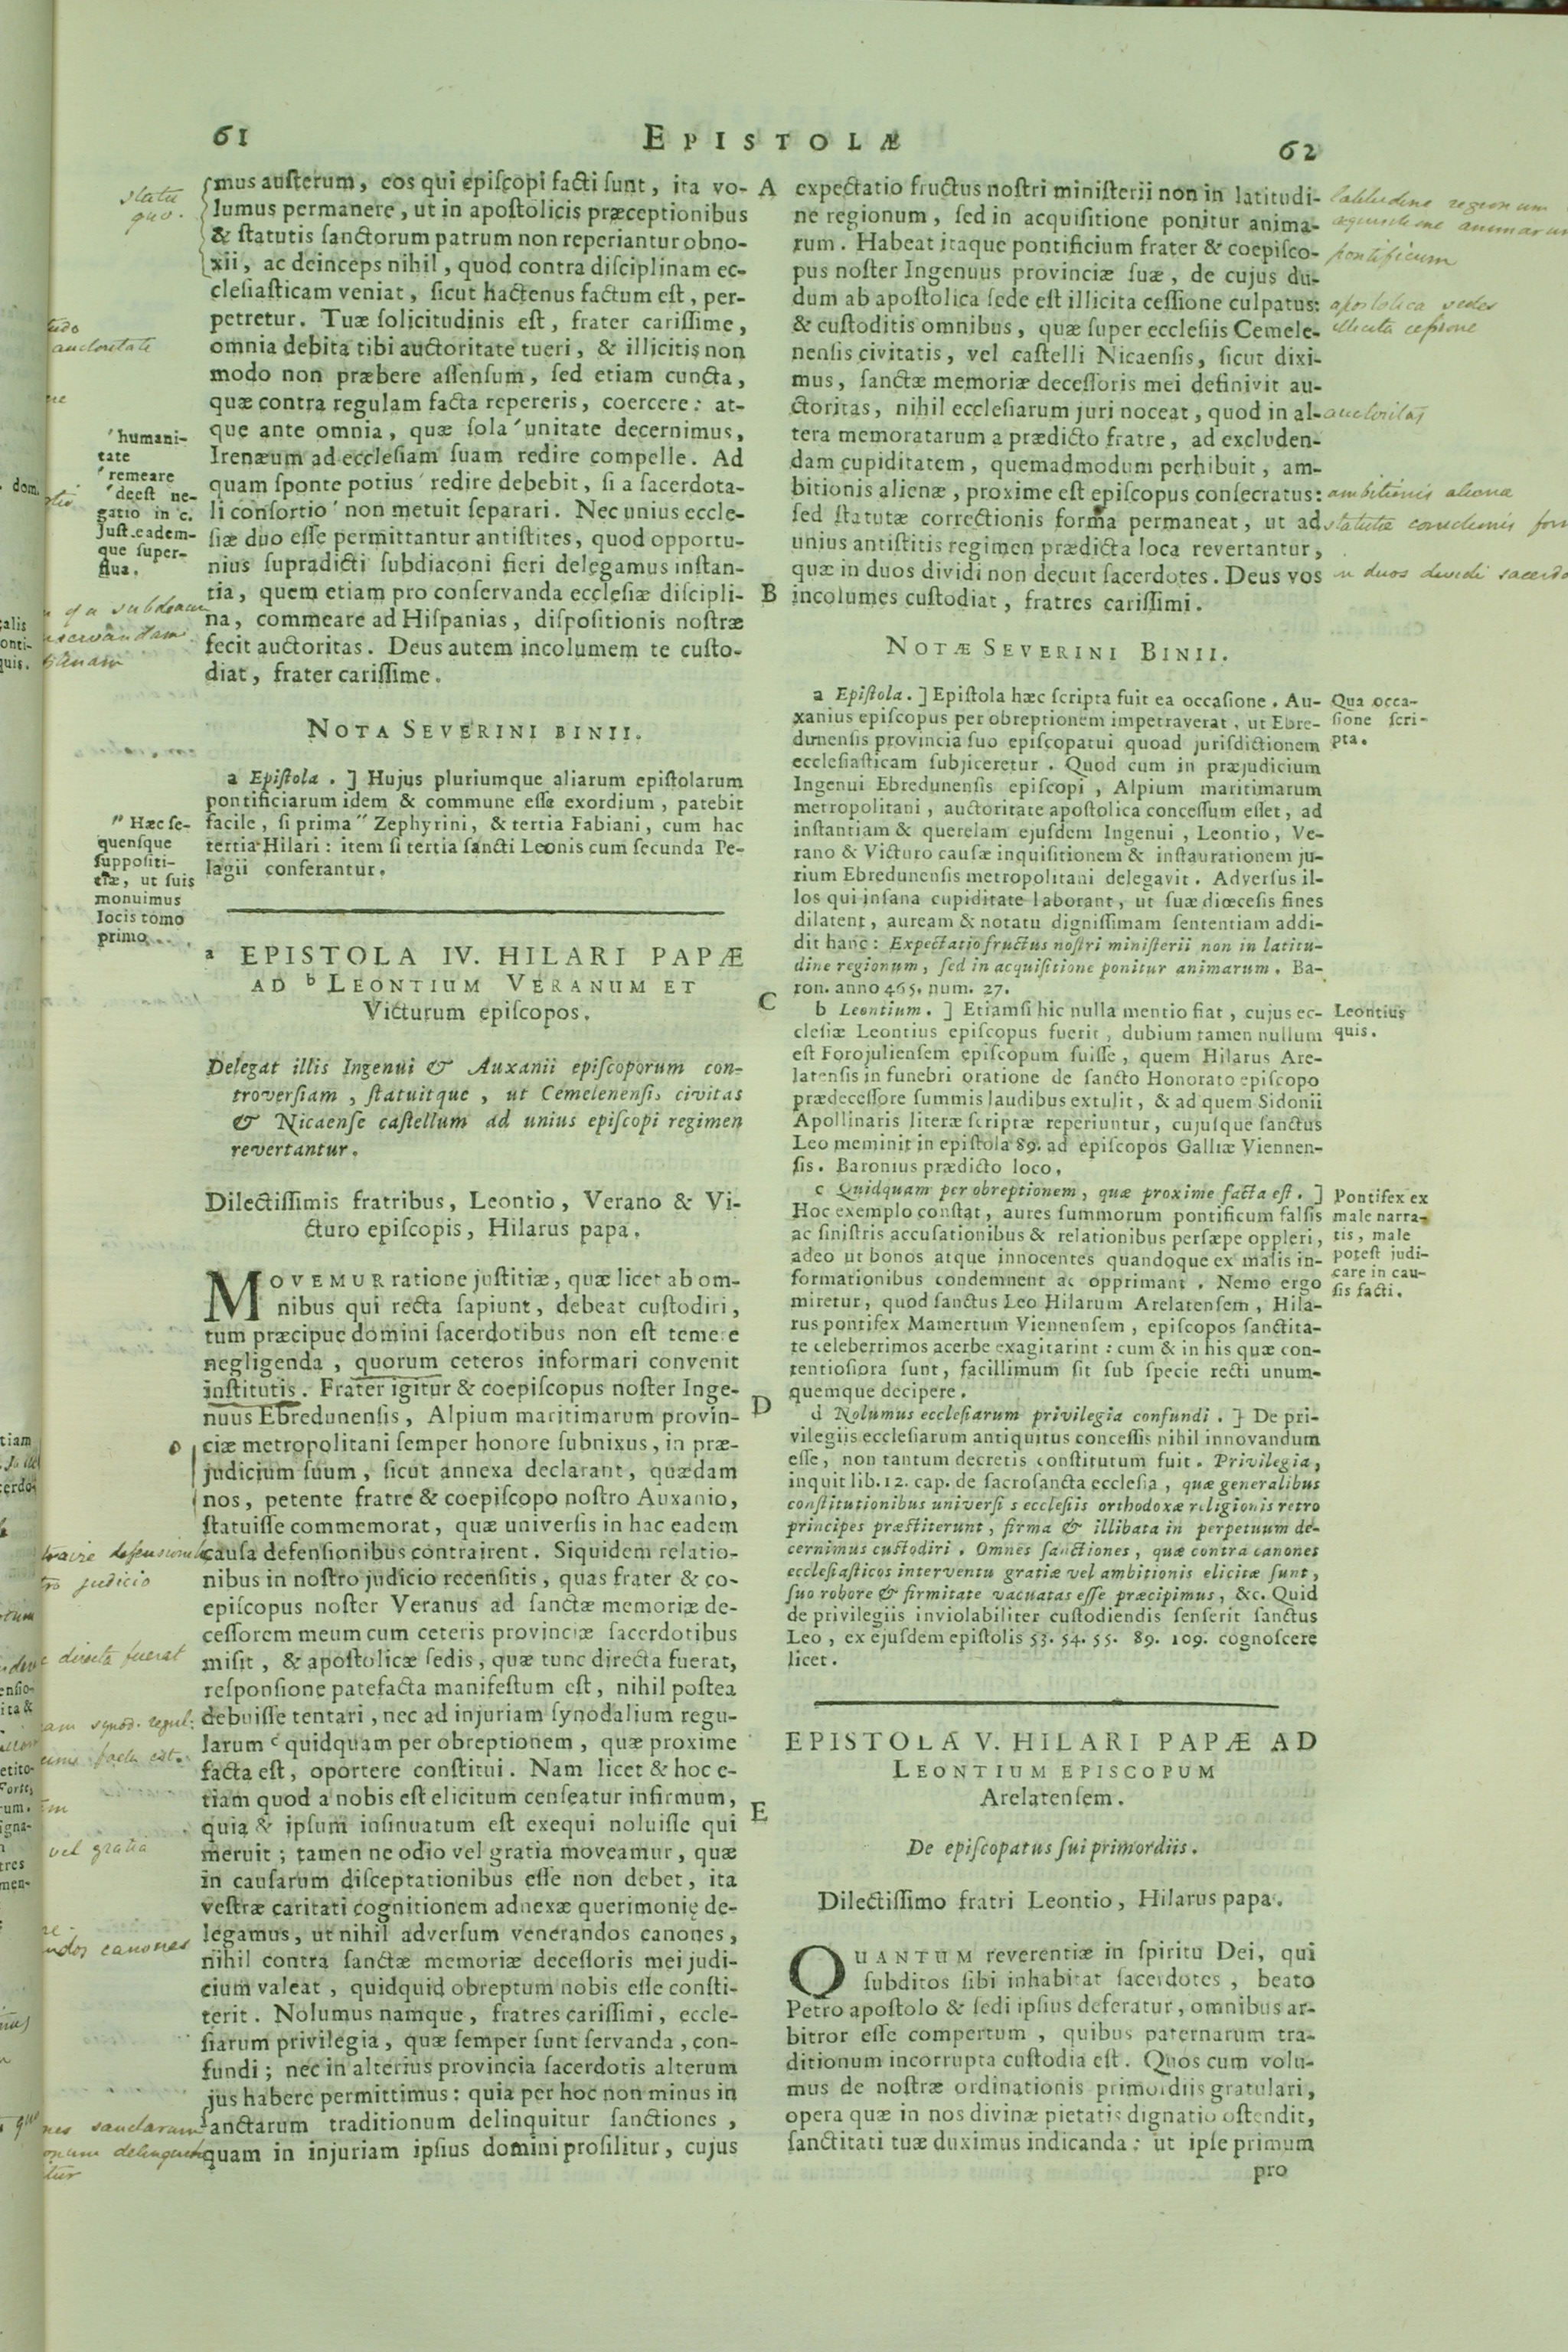 61
EPISTOLÆ
62
ſmus auſterum, eos qui epiſcopi facti ſunt, ita vo-
lumus permanere, ut in apoſtolicis præceptionibus
& ſtatutis ſanctorum patrum non reperiantur obno-
xii, ac deinceps nihil, quod contra diſciplinam ec-
cleſiaſticam veniat, ſicut hactenus factum eſt, per-
petretur. Tuæ ſolicitudinis eſt, frater cariſſime,
omnia debita tibi auctoritate tueri, & illicitis non
modo non præbere aſſenſum, ſed etiam cuncta,
quæ contra regulam facta repereris, coercere: at-
que ante omnia, quæ ſola ′ unitate decernimus,
Irenæum ad eccleſiam ſuam redire compelle. Ad
quam ſponte potius ′ redire debebit, ſi a ſacerdota-
li conſortio ′ non metuit ſeparari. Nec unius eccle-
ſiæ duo eſſe permittantur antiſtites, quod opportu-
nius ſupradicti ſubdiaconi fieri delegamus inſtan-
tia, quem etiam pro conſervanda eccleſiæ diſcipli-
na, commeare ad Hiſpanias, diſpoſitionis noſtræ
fecit auctoritas. Deus autem incolumem te cuſto-
diat, frater cariſſime.
statu
quo.
auctoritate
′ humani-
tate
′ remeare
′ deeſt ne-
gatio in c.
Juſt. eadem-
que ſuper-
flua.
NOTA SEVERINI BINII.
a Epiſtola. ] Hujus pluriumque aliarum epiſtolarum
pontificiarum idem & commune eſſe exordium, patebit
facile, ſi prima ″ Zephyrini, & tertia Fabiani, cum hac
tertia Hilari: item ſi tertia ſancti Leonis cum ſecunda Pe-
lagii conferantur.
″ Hæc ſe-
quenſque
ſuppoſiti-
tiæ, ut ſuis
monuimus
locis tomo
primo.
a EPISTOLA IV. HILARI PAPÆ
AD b LEONTIUM VERANUM ET
Victurum epiſcopos.
Delegat illis Ingenui & Auxanii epiſcoporum con-
troverſiam, ſtatuitque, ut Cemelenenſis civitas
& Nicaenſe caſtellum ad unius epiſcopi regimen
revertantur.
Dilectiſſimis fratribus, Leontio, Verano & Vi-
cturo epiſcopis, Hilarus papa.
MOVEMUR ratione juſtitiæ, quæ licet ab om-
nibus qui recta ſapiunt, debeat cuſtodiri,
tum præcipue domini ſacerdotibus non eſt temere
negligenda, quorum ceteros informari convenit
inſtitutis. Frater igitur & coepiſcopus noſter Inge-
nuus Ebredunenſis, Alpium maritimarum provin-
ciæ metropolitani ſemper honore ſubnixus, in præ-
judicium ſuum, ſicut annexa declarant, quædam
nos, petente fratre & coepiſcopo noſtro Auxanio,
ſtatuiſſe commemorat, quæ univerſis in hac eadem
cauſa defenſionibus contrairent. Siquidem relatio-
nibus in noſtro judicio recenſitis, quas frater & co-
epiſcopus noſter Veranus ad ſanctæ memoriæ de-
ceſſorem meum cum ceteris provinciæ ſacerdotibus
miſit, & apoſtolicæ ſedis, quæ tunc directa fuerat,
reſponſione patefacta manifeſtum eſt, nihil poſtea
debuiſſe tentari, nec ad injuriam ſynodalium regu-
larum c quidquam per obreptionem, quæ proxime
facta eſt, oportere conſtitui. Nam licet & hoc e-
tiam quod a nobis eſt elicitum cenſeatur infirmum,
quia & ipſum inſinuatum eſt exequi noluiſſe qui
meruit; tamen ne odio vel gratia moveamur, quæ
in cauſarum diſceptationibus eſſe non debet, ita
veſtræ caritati cognitionem adnexæ querimonię de-
legamus, ut nihil adverſum venerandos canones,
nihil contra ſanctæ memoriæ deceſſoris mei judi-
cium valeat, quidquid obreptum nobis eſſe conſti-
terit. Nolumus namque, fratres cariſſimi, eccle-
ſiarum privilegia, quæ ſemper ſunt ſervanda, con-
fundi; nec in alterius provincia ſacerdotis alterum
jus habere permittimus: quia per hoc non minus in
ſanctarum traditionum delinquitur ſanctiones,
quam in injuriam ipſius domini proſilitur, cujus
judicio
directa fuerat
vel gratia
canones
A
B
C
D
E
expectatio fructus noſtri miniſterii non in latitudi-
ne regionum, ſed in acquiſitione ponitur anima-
rum. Habeat itaque pontificium frater & coepiſco-
pus noſter Ingenuus provinciæ ſuæ, de cujus du-
dum ab apoſtolica ſede eſt illicita ceſſione culpatus:
& cuſtoditis omnibus, quæ ſuper eccleſiis Cemele-
nenſis civitatis, vel caſtelli Nicaenſis, ſicut dixi-
mus, ſanctæ memoriæ deceſſoris mei definivit au-
ctoritas, nihil eccleſiarum juri noceat, quod in al-
tera memoratarum a prædicto fratre, ad excluden-
dam cupiditatem, quemadmodum perhibuit, am-
bitionis alienæ, proxime eſt epiſcopus conſecratus:
ſed ſtatutæ correctionis forma permaneat, ut ad
unius antiſtitis regimen prædicta loca revertantur,
quæ in duos dividi non decuit ſacerdotes. Deus vos
incolumes cuſtodiat, fratres cariſſimi.
latitudine regionum
aquisitione animarum
pontificium
apostolica sedes
illicita cessione
auctoritas
ambitionis alienæ
statutæ correctionis
in duos dividi
NOTÆ SEVERINI BINII.
a Epiſtola. ] Epiſtola hæc ſcripta fuit ea occaſione. Au-
xanius epiſcopus per obreptionem impetraverat, ut Ebre-
dunenſis provincia ſuo epiſcopatui quoad jurisdictionem
eccleſiaſticam ſubjiceretur. Quod cum in præjudicium
Ingenui Ebredunenſis epiſcopi, Alpium maritimarum
metropolitani, auctoritate apoſtolica conceſſum eſſet, ad
inſtantiam & querelam ejuſdem Ingenui, Leontio, Ve-
rano & Victuro cauſæ inquiſitionem & inſtaurationem ju-
rium Ebredunenſis metropolitani delegavit. Adverſus il-
los qui inſana cupiditate laborant, ut ſuæ diœceſis fines
dilatent, auream & notatu digniſſimam ſententiam addi-
dit hanc: Expectatio fructus noſtri miniſterii non in latitu-
dine regionum, ſed in acquiſitione ponitur animarum. Ba-
ron. anno 465. num. 27.
b Leontium. ] Etiamſi hic nulla mentio fiat, cujus ec-
cleſiæ Leontius epiſcopus fuerit, dubium tamen nullum
eſt Forojulienſem epiſcopum fuiſſe, quem Hilarus Are-
latenſis in funebri oratione de ſancto Honorato epiſcopo
prædeceſſore ſummis laudibus extulit, & ad quem Sidonii
Apollinaris literæ ſcriptæ reperiuntur, cujuſque ſanctus
Leo meminit in epiſtola 89. ad epiſcopos Galliæ Viennen-
ſis. Baronius prædicto loco.
c Quidquam per obreptionem, quæ proxime facta eſt. ]
Hoc exemplo conſtat, aures ſummorum pontificum falſis
ac ſiniſtris accuſationibus & relationibus perſæpe oppleri,
adeo ut bonos atque innocentes quandoque ex malis in-
formationibus condemnent ac opprimant. Nemo ergo
miretur, quod ſanctus Leo Hilarum Arelatenſem, Hila-
rus pontifex Mamertum Viennenſem, epiſcopos ſanctita-
te celeberrimos acerbe exagitarint: cum & in his quæ con-
tentioſiora ſunt, facillimum ſit ſub ſpecie recti unum-
quemque decipere.
d Nolumus eccleſiarum privilegia confundi. ] De pri-
vilegiis eccleſiarum antiquitus conceſſis nihil innovandum
eſſe, non tantum decretis conſtitutum fuit. Privilegia,
inquit lib. 12. cap. de ſacroſancta eccleſia, quæ generalibus
conſtitutionibus univerſis eccleſiis orthodoxæ religionis retro
principes præſtiterunt, firma & illibata in perpetuum de-
cernimus cuſtodiri. Omnes ſanctiones, quæ contra canones
eccleſiaſticos interventu gratiæ vel ambitionis elicitæ ſunt,
ſuo robore & firmitate vacuatas eſſe præcipimus, &c. Quid
de privilegiis inviolabiliter cuſtodiendis ſenſerit ſanctus
Leo, ex ejuſdem epiſtolis 53. 54. 55. 89. 109. cognoſcere
licet.
Qua occa-
ſione ſcri-
pta.
Leontius
quis.
Pontifex ex
male narra-
tis, male
poteſt judi-
care in cau-
ſis facti.
EPISTOLA V. HILARI PAPÆ AD
LEONTIUM EPISCOPUM
Arelatenſem.
De epiſcopatus ſui primordiis.
Dilectiſſimo fratri Leontio, Hilarus papa.
QUANTUM reverentiæ in ſpiritu Dei, qui
ſubditos ſibi inhabitat ſacerdotes, beato
Petro apoſtolo & ſedi ipſius deferatur, omnibus ar-
bitror eſſe compertum, quibus paternarum tra-
ditionum incorrupta cuſtodia eſt. Quos cum volu-
mus de noſtræ ordinationis primordiis gratulari,
opera quæ in nos divinæ pietatis dignatio oſtendit,
ſanctitati tuæ duximus indicanda: ut ipſe primum
pro